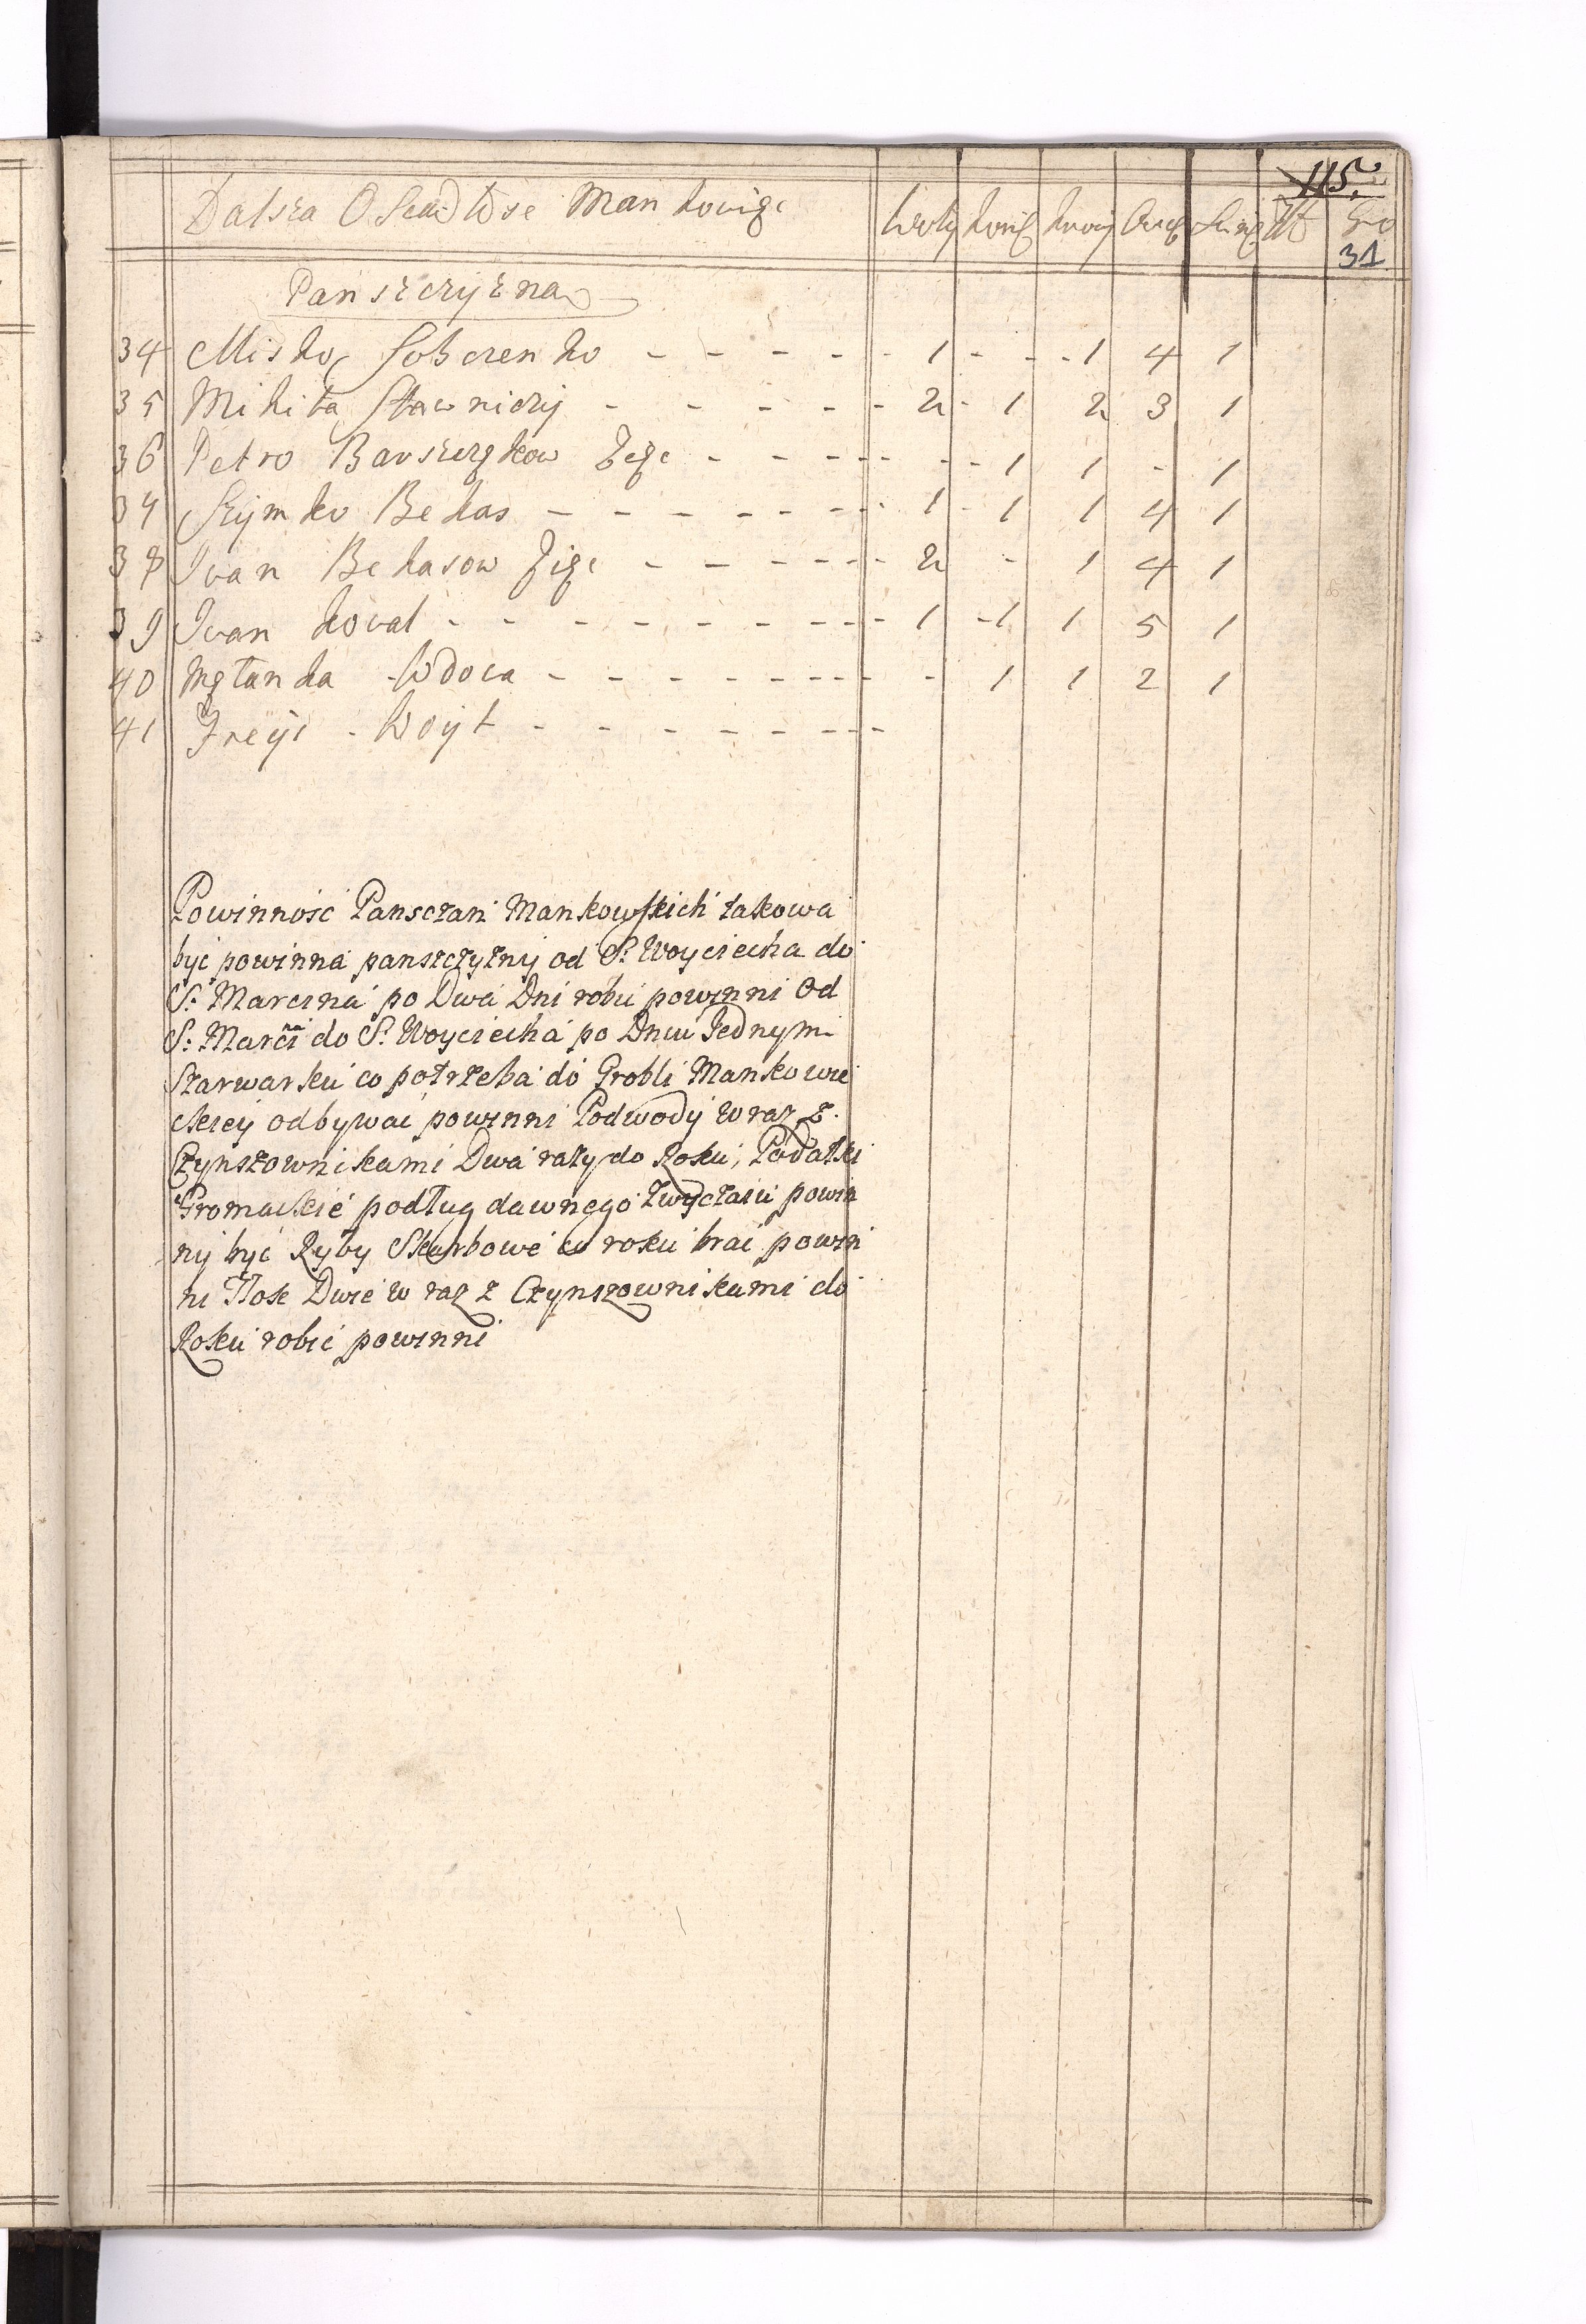 115
Dalsza Osiadłość Mankowiec Woły Koni Krowy Owce Swinie Zło Gro
31
Panszczyzna
34 Misko Sobczenko - - - - - 1 - - - 1 4 1
35 Mikita Stawniczy - - - - - 2 - 1 2 3 1
36 Petro Zięć - - - - - - - 1 1 - 1
37 Szymko Bekas - - - - - - - 1 - 1 1 4 1
38 Iwan Bekasow Zięć - - - - - - 2 - 1 4 1
39 Iwan Kowal - - - - - - - - - 1 - 1 1 5 1
40 Mełanka Wdowa - - - - - - - - - 1 1 2 1
41 Woyt - - - - - - - -
Powinność Pansczan Mankowskich takowa
być powinna panszczyzny od S: Woyciecha do
S: Marcina po Dwa Dni robić powinni Od
S: Marcina do S: Woyciecha po Dniu Jednym
Szarwarku co potrzeba do Grobli Mankowie
ckiey odbywać powinni Podwody wraz z
Czynszownikami Dwa razy do Roku, Podatki
Gromackie podług dawnego zwyczaiu powin
ny być Ryby Skarbowe co roku brać powin
ni Tłok Dwie w raz z Czynszownikami do
Roku robić powinni